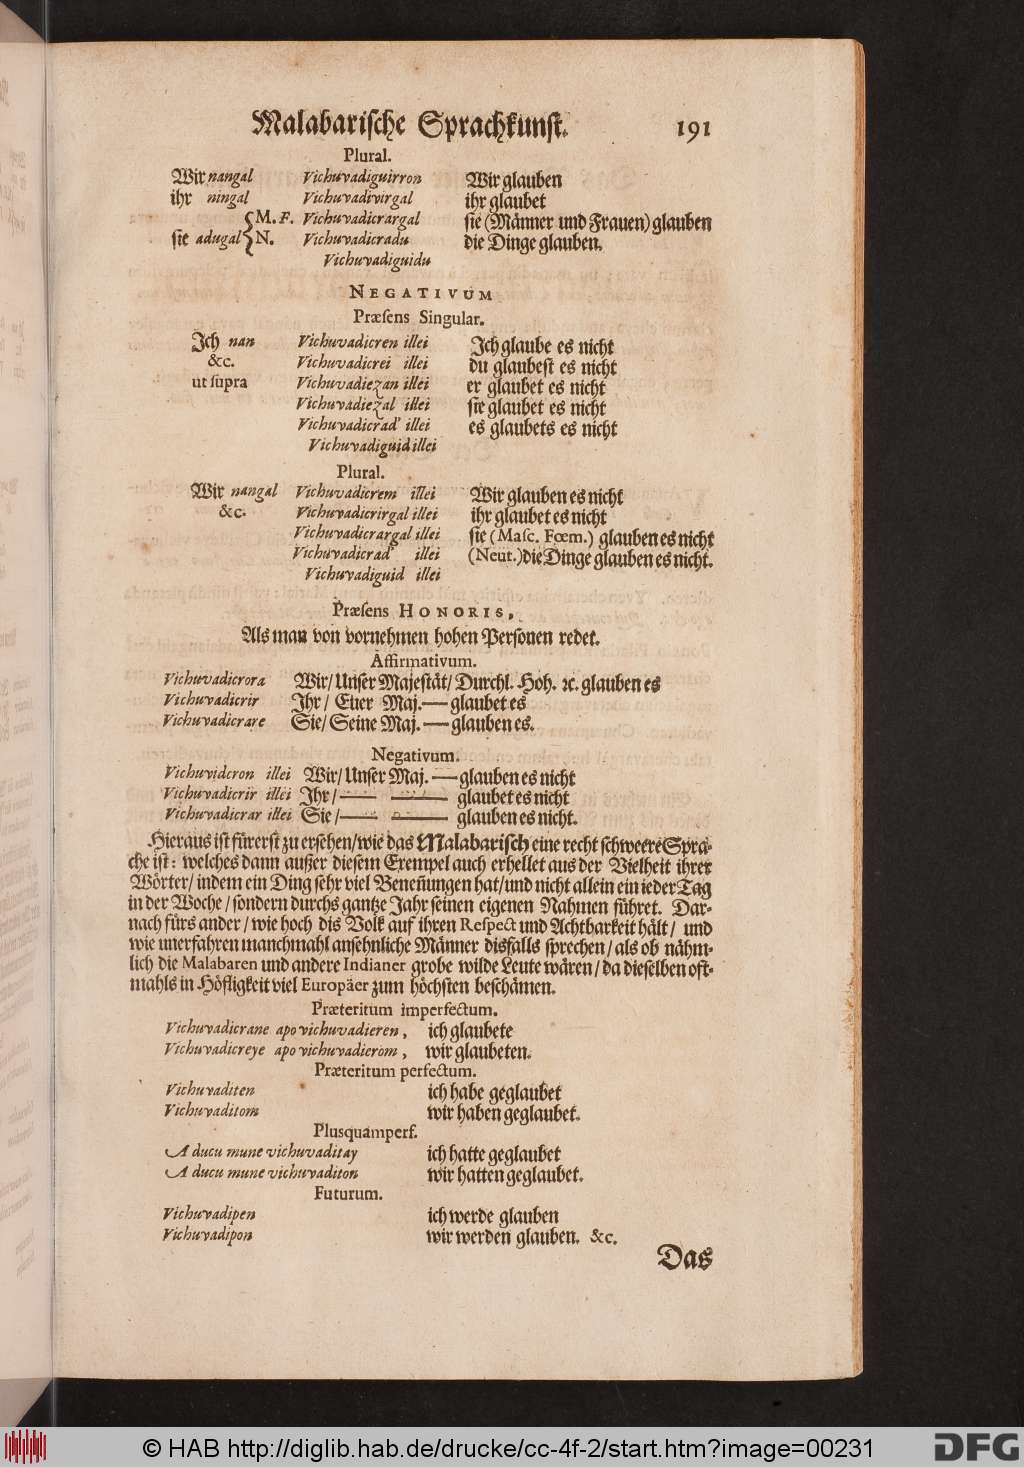 Malabarische Sprachkunst. 191
Plural.
Wir nangal Vichuvadiguirron Wir glauben
ihr ningal Vichuvadivirgal ihr glaubet
{M. F. Vichuvadicrargal sie (Männer und Frauen) glauben
sie adugal {N. Vichuvadicradu die Dinge glauben.
Vichuvadiguidu
NEGATIVUM
Præsens Singular.
Ich nan Vichuvadicren illei Ich glaube es nicht
&c. Vichuvadicrei illei du glaubest es nicht
ut supra Vichuvadiezan illei er glaubet es nicht
Vichuvadiezal illei sie glaubet es nicht
Vichuvadicrad' illei es glaubets es nicht
Vichuvadiguid illei
Plural.
Wir nangal Vichuvadicrem illei Wir glauben es nicht
&c. Vichuvadicrirgal illei ihr glaubet es nicht
Vichuvadicrargal illei sie (Masc. Fœm.) glauben es nicht
Vichuvadicrad' illei (Neut.) die Dinge glauben es nicht.
Vichuvadiguid illei
Præsens HONORIS,
Als man von vornehmen hohen Personen redet.
Affirmativum.
Vichuvadicrora Wir/ Unser Majestät/ Durchl. Hoh. ꝛc. glauben es
Vichuvadicrir Ihr/ Euer Maj. — glaubet es
Vichuvadicrare Sie/ Seine Maj. — glauben es.
Negativum.
Vichuvidcron illei Wir/ Unser Maj. — glauben es nicht
Vichuvadicrir illei Ihr/ — — glaubet es nicht
Vichuvadicrar illei Sie/ — — glauben es nicht.
Hieraus ist fürerst zu ersehen/ wie das Malabarisch eine recht schweere Spra-
che ist: welches dann außer diesem Exempel auch erhellet aus der Vielheit ihrer
Wörter/ indem ein Ding sehr viel Beneñungen hat/ und nicht allein ein ieder Tag
in der Woche/ sondern durchs gantze Jahr seinen eigenen Nahmen führet. Dar-
nach fürs ander/ wie hoch dis Volk auf ihren Respect und Achtbarkeit hält/ und
wie unerfahren manchmahl ansehnliche Männer disfalls sprechen/ als ob nähm-
lich die Malabaren und andere Indianer grobe wilde Leute wären/ da dieselben oft-
mahls in Höfligkeit viel Europäer zum höchsten beschämen.
Præteritum imperfectum.
Vichuvadicrane apo vichuvadieren, ich glaubete
Vichuvadicreye apo vichuvadierom, wir glaubeten.
Præteritum perfectum.
Vichuvaditen ich habe geglaubet
Vichuvaditom wir haben geglaubet.
Plusquamperf.
A ducu mune vichuvaditay ich hatte geglaubet
A ducu mune vichuvaditon wir hatten geglaubet.
Futurum.
Vichuvadipen ich werde glauben
Vichuvadipon wir werden glauben. &c.
Das
© HAB http://diglib.hab.de/drucke/cc-4f-2/start.htm?image=00231 DFG